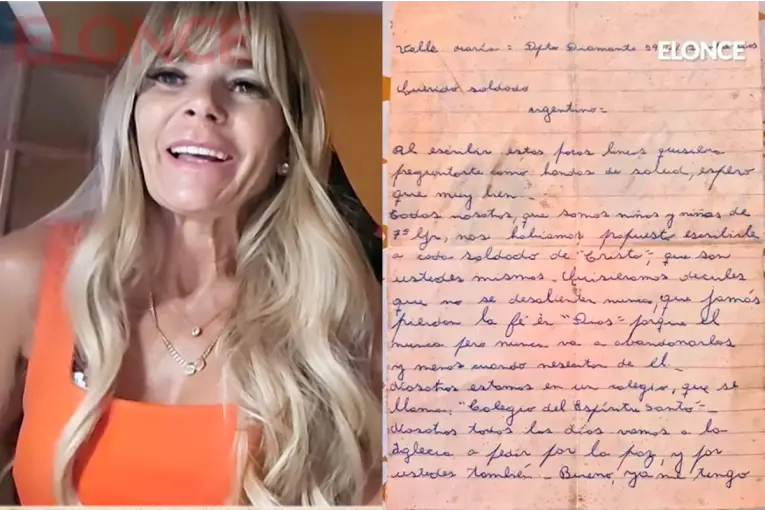 ELONCE
ELONCE
Valle María = Dpto Diamante
Querido soldado
argentino =
Al escribir estas pocas lineas quisiera
preguntarte como handas de salud, espero
que muy bien _
todos nosotros, que somos niños y niñas de
7º Gr, nos habiamos propuesto escribirle
a cada soldado de "Cristo", que son
ustedes mismos. Quisieramos decirles
que no se desalienten nunca, que jamás
pierdan la fé en "Dios" = porque el
nunca pero nunca va a abandonarlos
y menos cuando necesiten de El _
Nosotros estamos en un colegio, que se
llama, "Colegio del Espíritu Santo" _
Nosotros todos los días vamos a la
Iglecia a pedir por la paz, y por
ustedes también _ Bueno, ya me tengo